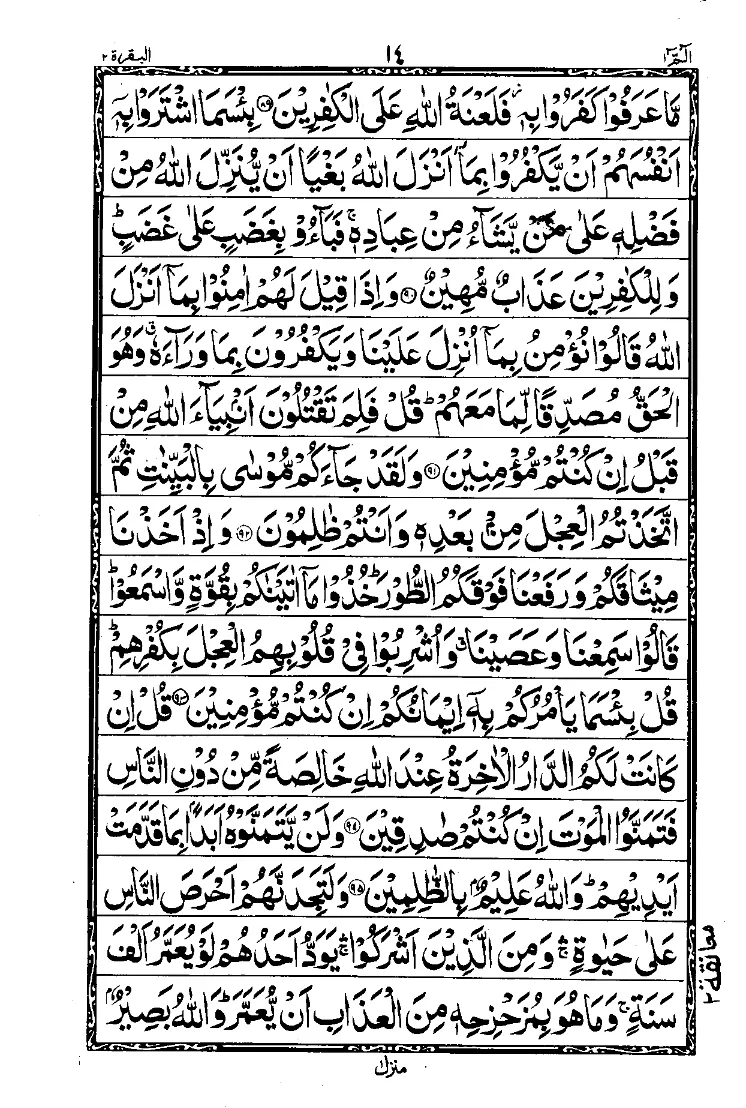 البقرة ٢ ١٤ الٓمّٓ ١
مَّا عَرَفُوْا كَفَرُوْا بِهٖ ۫ فَلَعْنَةُ اللّٰهِ عَلَى الْكٰفِرِيْنَ ﴿۸۹﴾ بِئْسَمَا اشْتَرَوْا بِهٖٓ
اَنْفُسَهُمْ اَنْ يَّكْفُرُوْا بِمَآ اَنْزَلَ اللّٰهُ بَغْيًا اَنْ يُّنَزِّلَ اللّٰهُ مِنْ
فَضْلِهٖ عَلٰى مَنْ يَّشَآءُ مِنْ عِبَادِهٖ ۚ فَبَآءُوْ بِغَضَبٍ عَلٰى غَضَبٍ ؕ
وَلِلْكٰفِرِيْنَ عَذَابٌ مُّهِيْنٌ ﴿۹۰﴾ وَاِذَا قِيْلَ لَهُمْ اٰمِنُوْا بِمَآ اَنْزَلَ
اللّٰهُ قَالُوْا نُؤْمِنُ بِمَآ اُنْزِلَ عَلَيْنَا وَيَكْفُرُوْنَ بِمَا وَرَآءَهٗ ۗ وَهُوَ
الْحَقُّ مُصَدِّقًا لِّمَا مَعَهُمْ ؕ قُلْ فَلِمَ تَقْتُلُوْنَ اَنْۢبِيَآءَ اللّٰهِ مِنْ
قَبْلُ اِنْ كُنْتُمْ مُّؤْمِنِيْنَ ﴿۹۱﴾ وَلَقَدْ جَآءَكُمْ مُّوْسٰى بِالْبَيِّنٰتِ ثُمَّ
اتَّخَذْتُمُ الْعِجْلَ مِنْۢ بَعْدِهٖ وَاَنْتُمْ ظٰلِمُوْنَ ﴿۹۲﴾ وَاِذْ اَخَذْنَا
مِيْثَاقَكُمْ وَرَفَعْنَا فَوْقَكُمُ الطُّوْرَ ؕ خُذُوْا مَآ اٰتَيْنٰكُمْ بِقُوَّةٍ وَّاسْمَعُوْا ؕ
قَالُوْا سَمِعْنَا وَعَصَيْنَا ۗ وَاُشْرِبُوْا فِيْ قُلُوْبِهِمُ الْعِجْلَ بِكُفْرِهِمْ ؕ
قُلْ بِئْسَمَا يَاْمُرُكُمْ بِهٖٓ اِيْمَانُكُمْ اِنْ كُنْتُمْ مُّؤْمِنِيْنَ ﴿۹۳﴾ قُلْ اِنْ
كَانَتْ لَكُمُ الدَّارُ الْاٰخِرَةُ عِنْدَ اللّٰهِ خَالِصَةً مِّنْ دُوْنِ النَّاسِ
فَتَمَنَّوُا الْمَوْتَ اِنْ كُنْتُمْ صٰدِقِيْنَ ﴿۹۴﴾ وَلَنْ يَّتَمَنَّوْهُ اَبَدًۢا بِمَا قَدَّمَتْ
اَيْدِيْهِمْ ؕ وَاللّٰهُ عَلِيْمٌۢ بِالظّٰلِمِيْنَ ﴿۹۵﴾ وَلَتَجِدَنَّهُمْ اَحْرَصَ النَّاسِ
عَلٰى حَيٰوةٍ ۛۚ وَمِنَ الَّذِيْنَ اَشْرَكُوْا ۛۚ يَوَدُّ اَحَدُهُمْ لَوْ يُعَمَّرُ اَلْفَ
سَنَةٍ ۚ وَمَا هُوَ بِمُزَحْزِحِهٖ مِنَ الْعَذَابِ اَنْ يُّعَمَّرَ ؕ وَاللّٰهُ بَصِيْرٌۢ
معانقة ٢
منزل